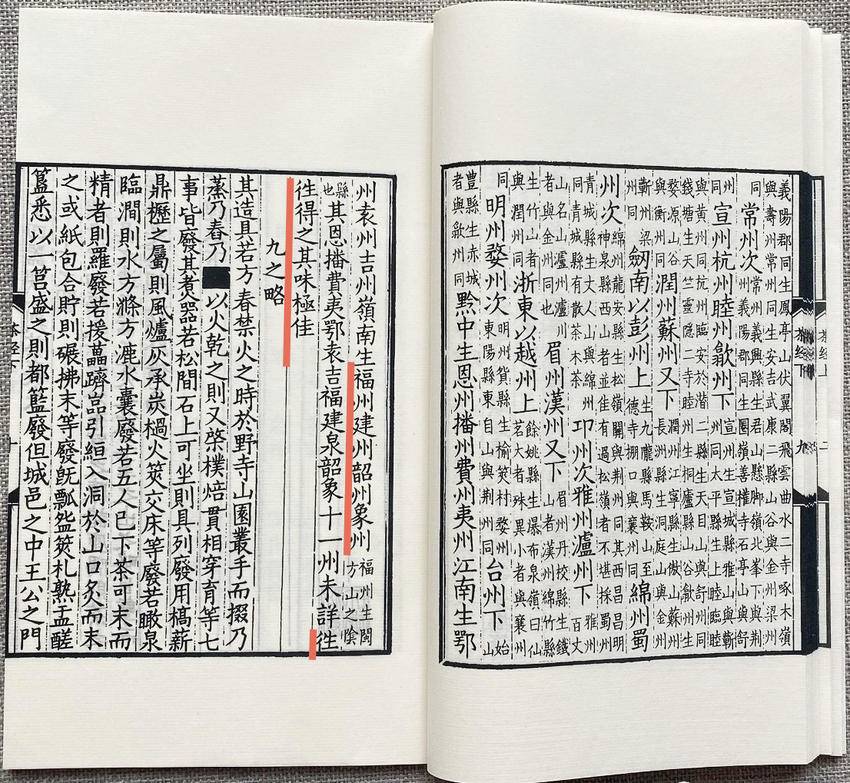 義陽郡同生鳳亭山伏翼閣飛雲曲水二寺啄木嶺
與壽州常州同生安吉武康二縣山谷與金州梁州
同常州次常州義興縣生君山懸脚嶺北峯下與荆
州義陽郡同生圈嶺善權寺石亭山與舒
州同宣州杭州睦州歙州下宣州生宣城縣雅山與蘄
州同太平縣生上睦臨睦
與黃州同杭州臨安於潛二縣生天目山與舒州同
錢塘生天竺靈隱二寺睦州生桐廬縣山谷歙州生
婺源山谷
與衡州同潤州蘇州又下潤州江寧縣生傲山蘇州
長洲縣生洞庭山與金州
蘄州梁
州同劒南以彭州上生九隴縣馬鞍山至
德寺棚口與襄州同綿州蜀
州次綿州龍安縣生松嶺關與荆州同其西昌昌明
神泉縣西山者並佳有過松嶺者不堪採蜀州
青城縣生丈人山與綿州
同青城縣有散茶木茶邛州次雅州瀘州下雅州
百丈
山名山瀘州瀘川
者與金州同也眉州漢州又下眉州丹校縣生鐵
山者漢州綿竹縣
生竹山者
與潤州同浙東以越州上餘姚縣生瀑布泉嶺曰仙
茗大者殊異小者與襄州
同明州婺州次明州貨縣生榆筴村婺州
東陽縣東自山與荆州同台州下始
山
豐縣生赤城
者與歙州同黔中生恩州播州費州夷州江南生鄂
茶經上
二
茶經下
九
州袁州吉州嶺南生福州建州韶州象州福州生閩
方山之陰
縣
也其恩播費夷鄂袁吉福建泉韶象十一州未詳徃
徃得之其味極佳
九之略
其造具若方春禁火之時於野寺山園叢手而掇乃
蒸乃舂乃以火乾之則又棨樸焙貫相穿育等七
事皆廢其煮器若松間石上可坐則具列廢用槁薪
鼎𨫼之屬則風爐灰承炭檛火筴交床等廢若瞰泉
臨澗則水方滌方漉水囊廢若五人已下茶可末而
精者則羅廢若援藟躋嵒引絙入洞於山口炙而末
之或紙包合貯則碾拂末等廢旣瓢盌筴札熟盂鹺
簋悉以一筥盛之則都籃廢但城邑之中王公之門
茶經下
十